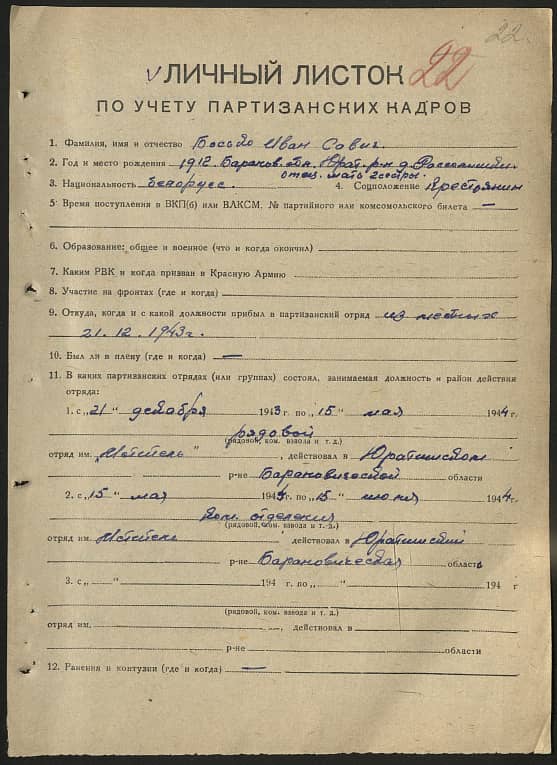 22.
22
V ЛИЧНЫЙ ЛИСТОК
ПО УЧЕТУ ПАРТИЗАНСКИХ КАДРОВ
1. Фамилия, имя и отчество Босько Иван Савич.
2. Год и место рождения 1912. Баранов. обл. Юрат. р-н д.
отец. мать 2 сестры.
3. Национальность белорусс. 4. Соцположение Крестьянин
5. Время поступления в ВКП(б) или ВЛКСМ, № партийного или комсомольского билета —
6. Образование: общее и военное (что и когда окончил)
7. Каким РВК и когда призван в Красную Армию
8. Участие на фронтах (где и когда)
9. Откуда, когда и с какой должности прибыл в партизанский отряд из местных
21.12.1943г.
10. Был ли в плену (где и когда) —
11. В каких партизанских отрядах (или группах) состоял, занимаемая должность и район действия
отряда:
1. с „21" декабря 1943 г. по „15" мая 1944 г.
рядовой
(рядовой, ком. взвода и т. д.)
отряд им. , действовал в Юратишском
р-не Барановической области
2. с „15" мая 1944 г. по „15" июля 1944 г.
ком. отделения
(рядовой, ком. взвода и т. д.)
отряд им. действовал в Юратишский
р-не Барановическая область
3. с „ " 194 г. по „ " 194 г
(рядовой, ком. взвода и т. д.)
отряд им. , действовал в
р-не области
12. Ранения и контузии (где и когда) —